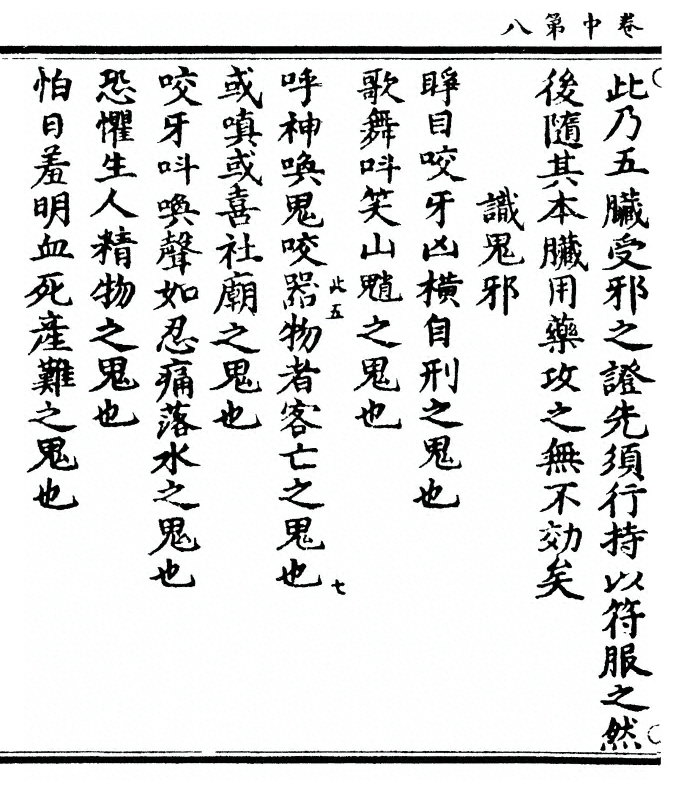 卷中第八
此乃五臟受邪之證先須行持以符服之然
後隨其本臟用藥攻之無不効矣
識鬼邪
睜目咬牙凶横自刑之鬼也
歌舞呌笑山魈之鬼也
呼神喚鬼咬器物者客亡之鬼也
此五
七
或嗔或喜社廟之鬼也
咬牙呌喚聲如忍痛落水之鬼也
恐懼生人精物之鬼也
怕日羞明血死產難之鬼也